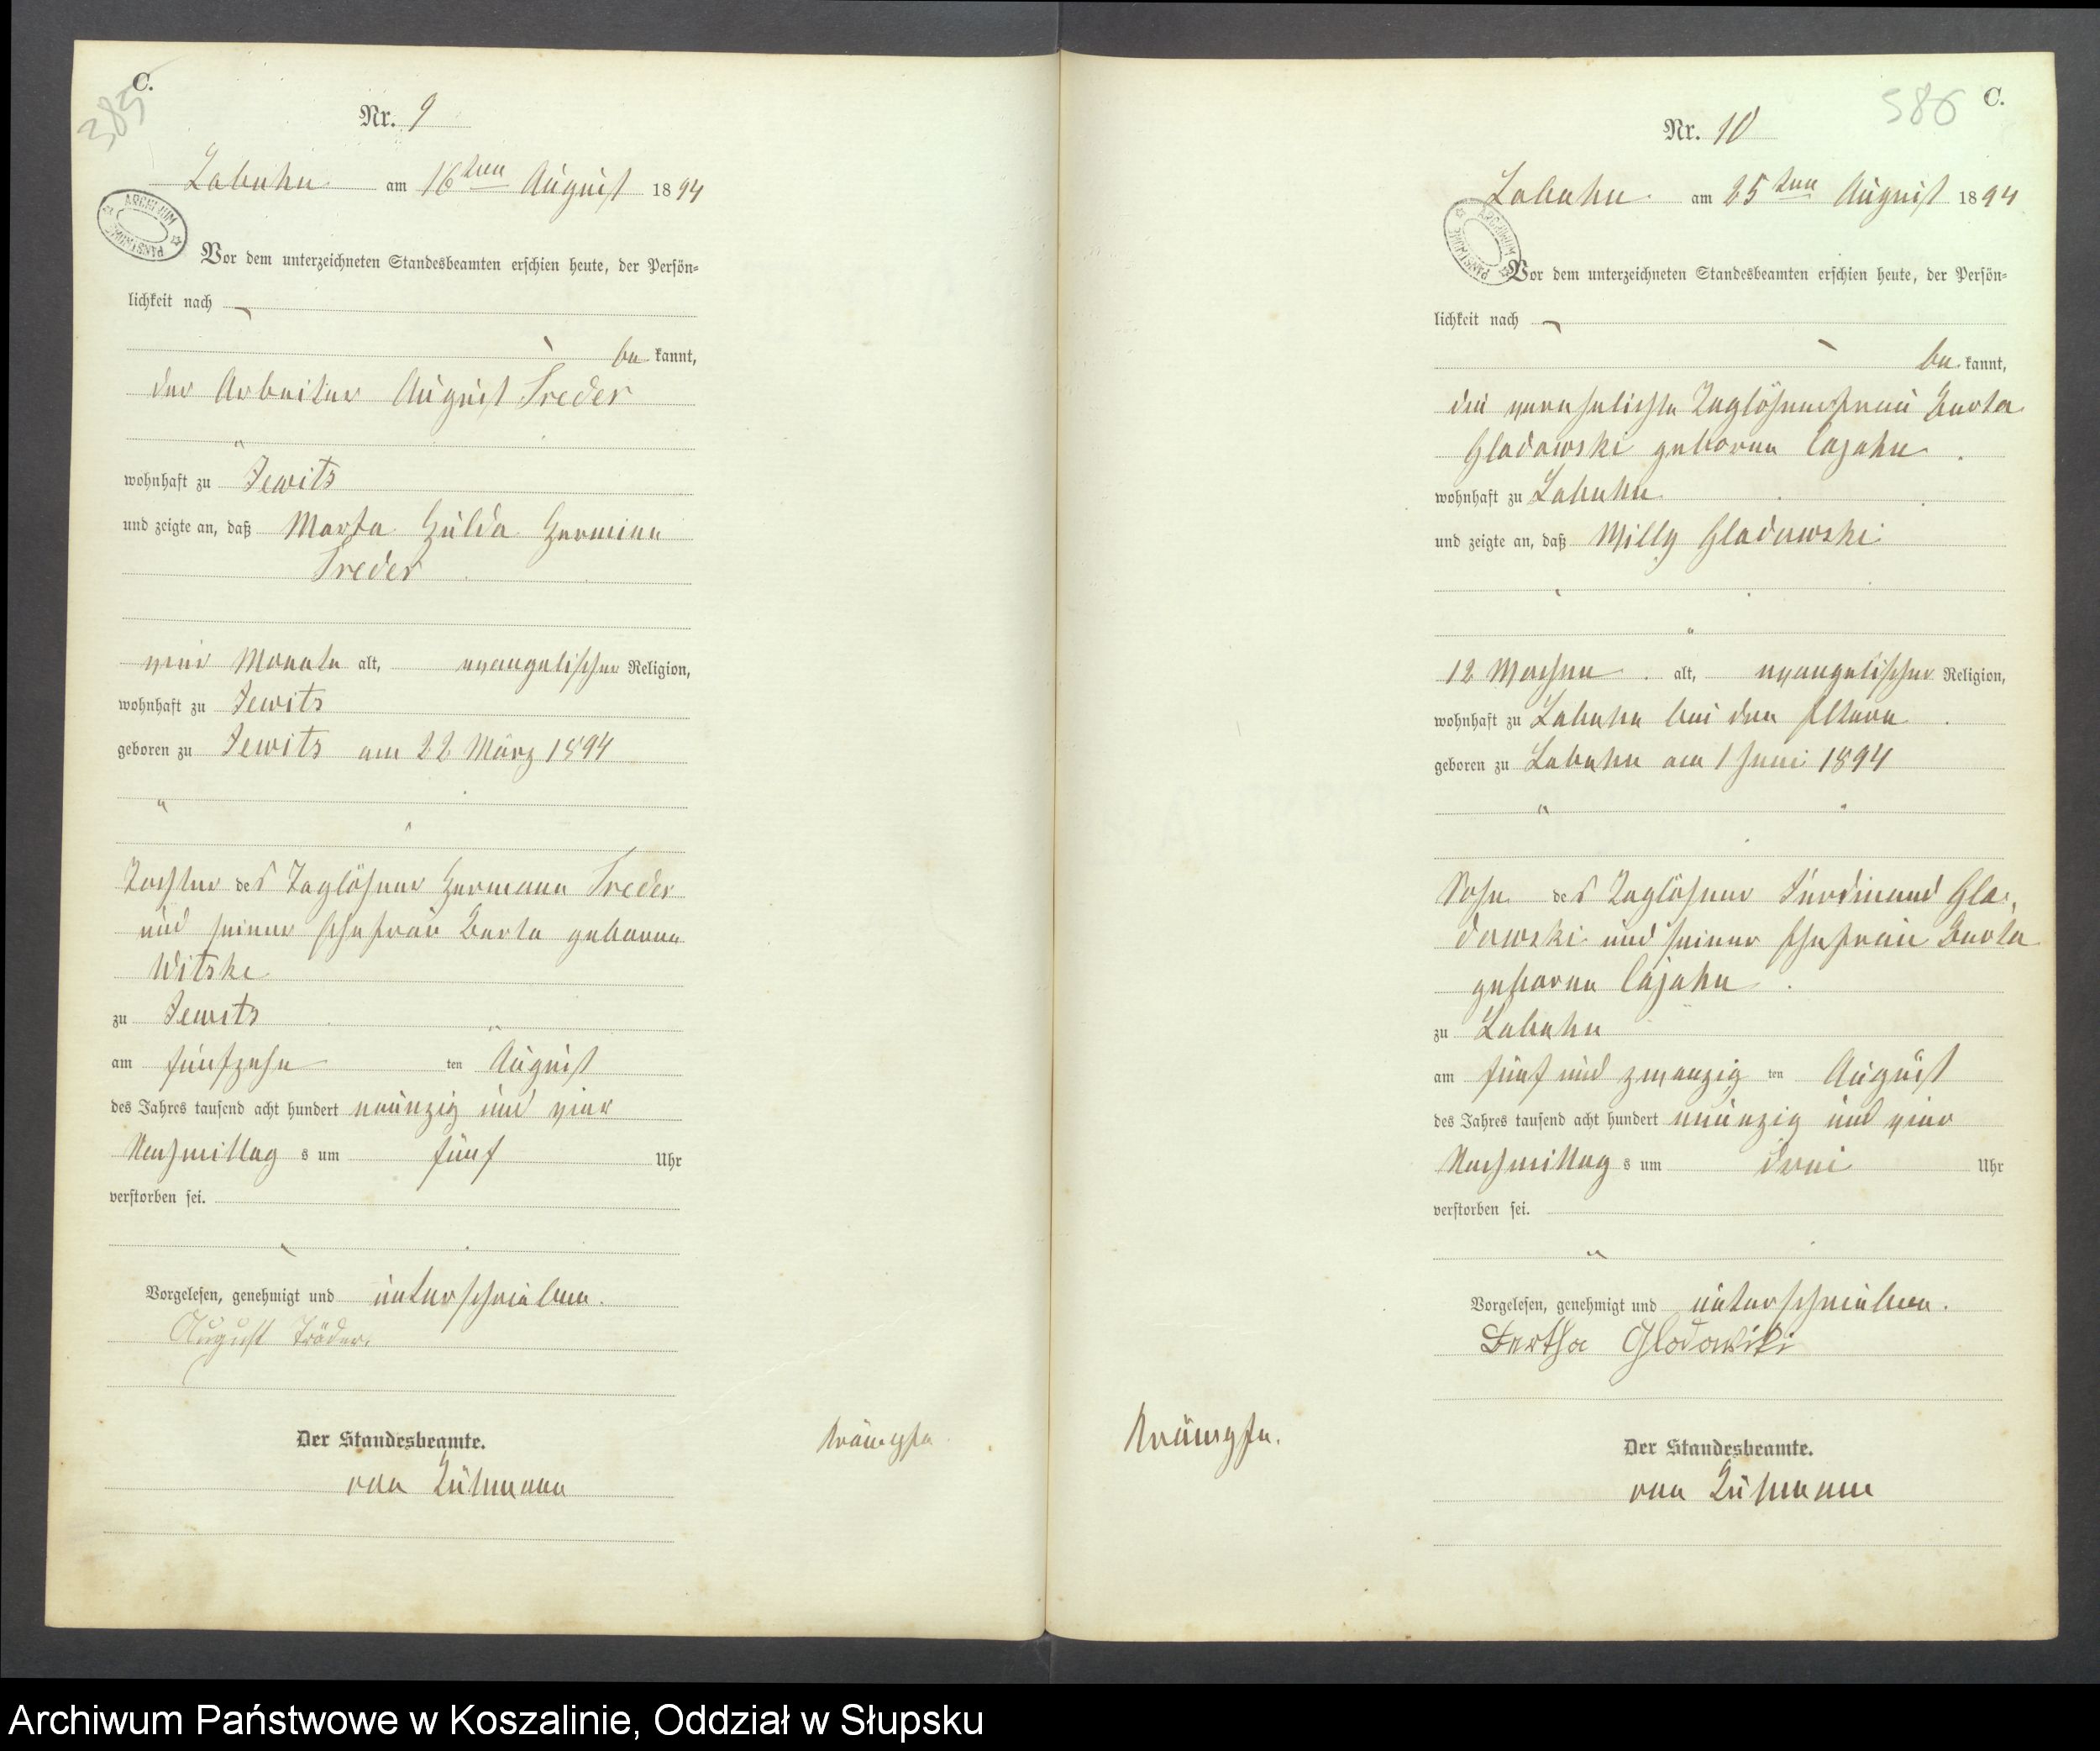 C.
385
Nr. 9
Labuhn am 16ten August 1894
ARCHIWUM PAŃSTWOWE
Vor dem unterzeichneten Standesbeamten erschien heute, der Persön=
lichkeit nach
be kannt,
der Arbeiter August Treder
wohnhaft zu Jewits
und zeigte an, daß Marta Hulda Hermine
Treder
vier Monate alt, evangelischer Religion,
wohnhaft zu Jewits
geboren zu Jewits am 22 März 1894
Tochter des Taglöhner Hermann Treder
und seiner Ehefrau Berta geborene
Witzke
zu Jewits
am fünfzehn ten August
des Jahres tausend acht hundert neunzig und vier
Nachmittag s um fünf Uhr
verstorben sei.
Vorgelesen, genehmigt und unterschrieben.
August Träder.
Der Standesbeamte.
von
Krämpfe
C.
386
Nr. 10
Labuhn am 25ten August 1894
ARCHIWUM PAŃSTWOWE
Vor dem unterzeichneten Standesbeamten erschien heute, der Persön=
lichkeit nach
be kannt,
die verehelichte Taglöhnerfrau Berta
Gladowski geborene Cajahn
wohnhaft zu Labuhn
und zeigte an, daß Willy Gladowski
12 Wochen alt, evangelischer Religion,
wohnhaft zu Labuhn bei den Eltern
geboren zu Labuhn am 1 Juni 1894
Sohn des Taglöhner Ferdinand Gla=
dowski und seiner Ehefrau Berta
geborene Cajahn
zu Labuhn
am fünf und zwanzig ten August
des Jahres tausend acht hundert neunzig und vier
Nachmittag s um drei Uhr
verstorben sei.
Vorgelesen, genehmigt und unterschrieben.
Bertha Glodowski
Krämpfe.
Der Standesbeamte.
von
Archiwum Państwowe w Koszalinie, Oddział w Słupsku